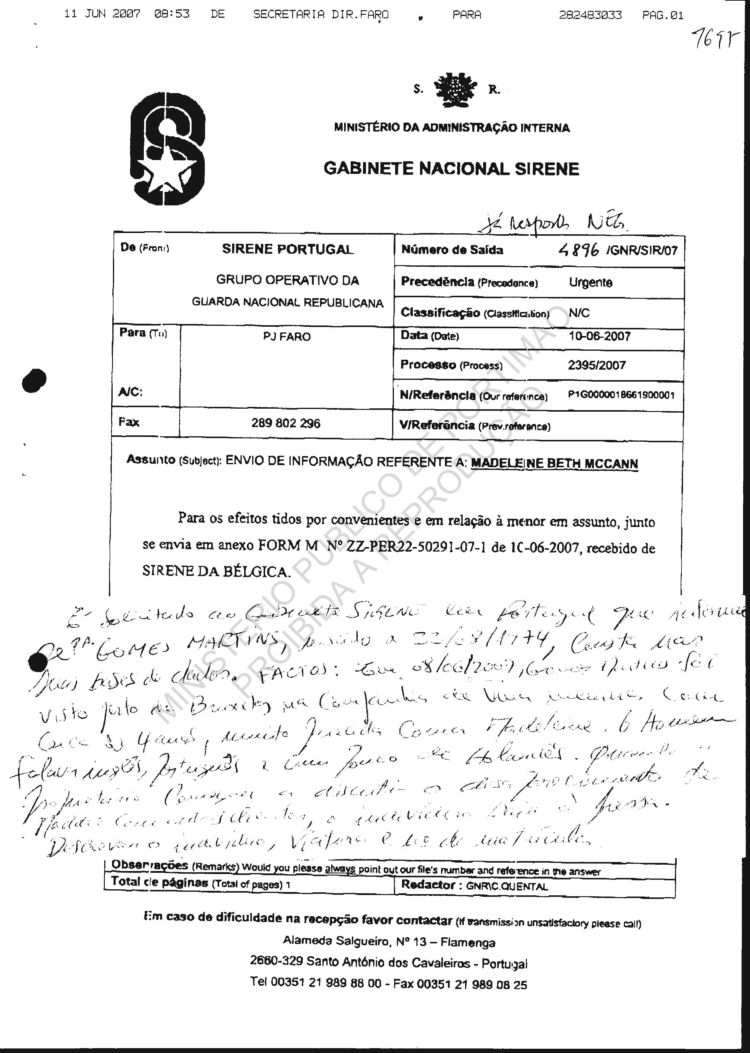 11 JUN 2007 08:53 DE SECRETARIA DIR.FARO PARA 282483033 PAG.01
S. R.
MINISTÉRIO DA ADMINISTRAÇÃO INTERNA
GABINETE NACIONAL SIRENE
Já respondi NEG.
De (From) SIRENE PORTUGAL
GRUPO OPERATIVO DA
GUARDA NACIONAL REPUBLICANA
Número de Saída 4896 /GNR/SIR/07
Precedência (Precedence) Urgente
Classificação (Classification) N/C
Para (To) PJ FARO
Data (Date) 10-06-2007
Processo (Process) 2395/2007
A/C:
N/Referência (Our reference) P1G0000018661900001
Fax 289 802 296
V/Referência (Prev.reference)
Assunto (Subject): ENVIO DE INFORMAÇÃO REFERENTE A: MADELEINE BETH MCCANN
Para os efeitos tidos por convenientes e em relação à menor em assunto, junto
se envia em anexo FORM M Nº ZZ-PER22-50291-07-1 de 10-06-2007, recebido de
SIRENE DA BÉLGICA.
É solicitado ao Gabinete SIRENE em Portugal que informe
GOMES MARTINS, nascido a 22/08/1974, consta nas
suas bases de dados. FACTOS: Em 08/06/2007, Gomes Martins foi
visto junto de Bruxelas na companhia de uma menina com
cerca de 4 anos, muito parecida com a Madeleine. O Homem
falava inglês, português e um pouco de Holandês. Quando o
proprietário começou a discutir o desaparecimento de
Maddie com outros clientes, o indivíduo saiu à pressa.
Descrevem o indivíduo, viatura e nº de matrícula.
Observações (Remarks) Would you please always point out our file's number and reference in the answer
Total de páginas (Total of pages) 1 Redactor : GNR\C.QUENTAL
Em caso de dificuldade na recepção favor contactar (If transmission unsatisfactory please call)
Alameda Salgueiro, Nº 13 – Flamenga
2660-329 Santo António dos Cavaleiros - Portugal
Tel 00351 21 989 88 00 - Fax 00351 21 989 08 25
MINISTÉRIO PÚBLICO DE PORTIMÃO
PROIBIDA A REPRODUÇÃO